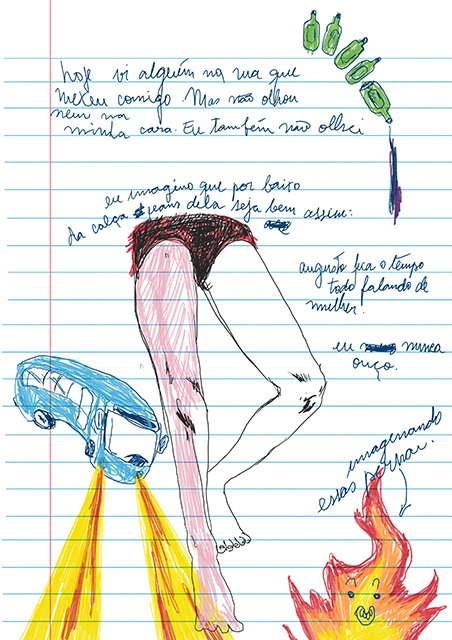 hoje vi alguém na rua que
mexeu comigo. Mas não olhou
nem na
minha cara. Eu também não olhei
eu imagino que por baixo
da calça jeans dela seja bem assim:
augusto fica o tempo
todo falando de
mulher.
eu nunca
ouço.
imaginando
essas